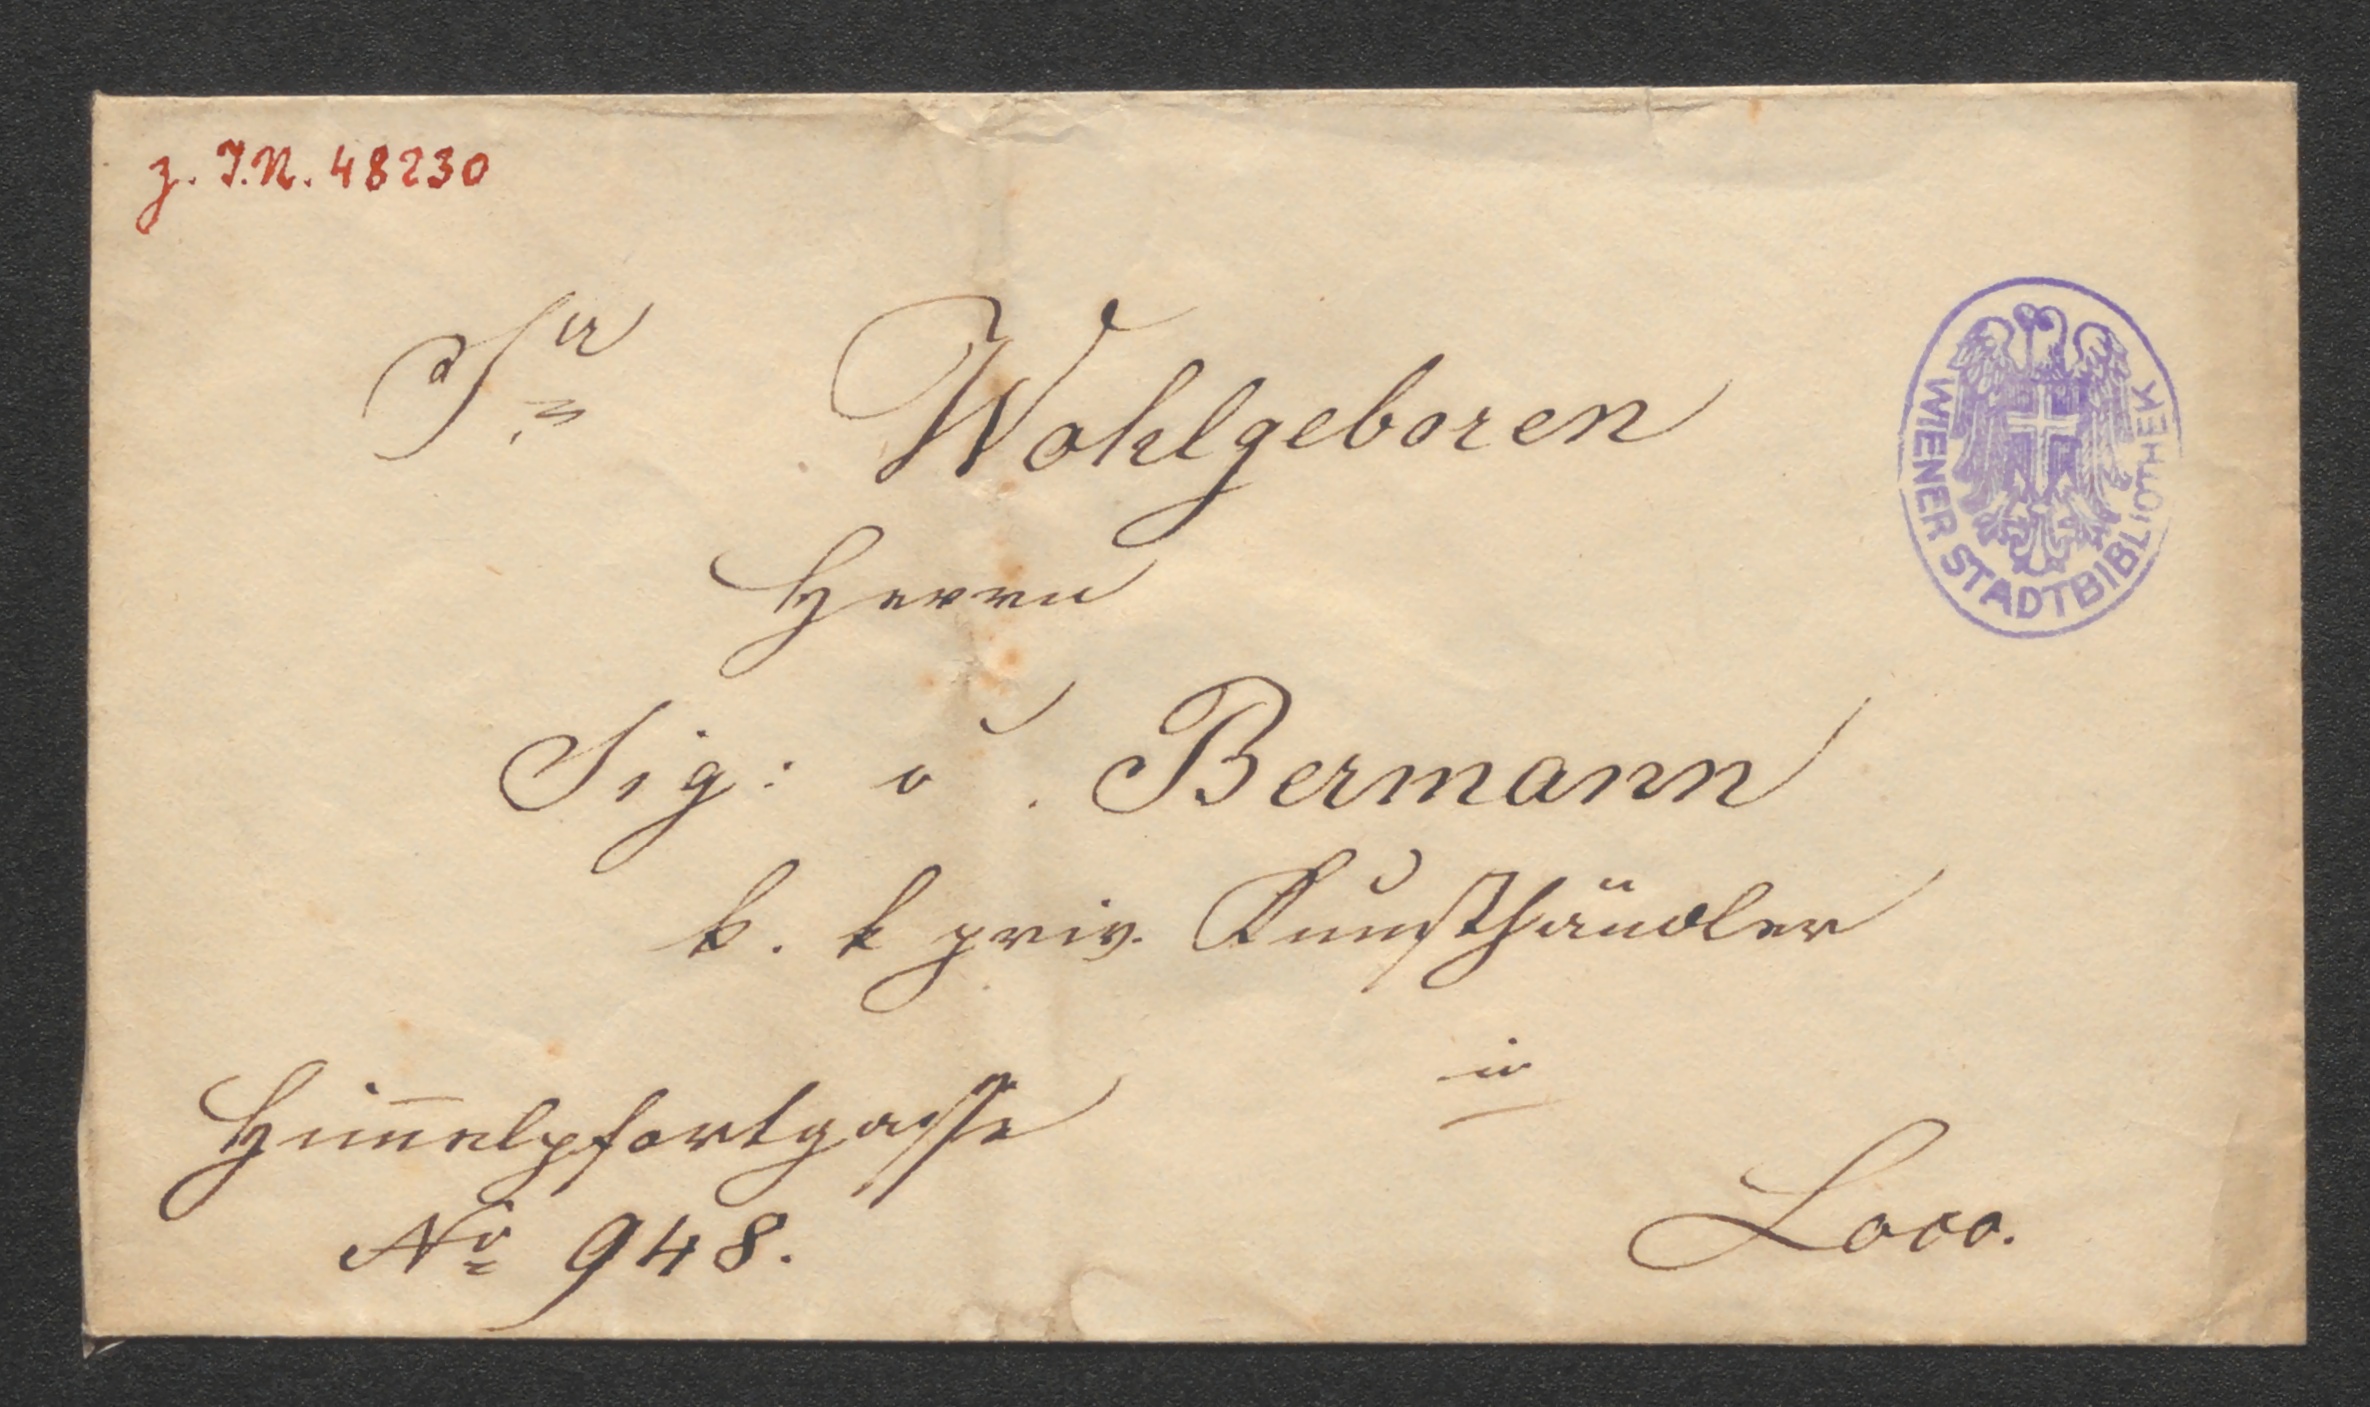 z. I.N. 48230
Sr Wohlgeboren
WIENER STADTBIBLIOTHEK
Herrn
Sig: v. Bermann
k. k priv. Kunsthändler
in
Loco.
Him̅elpfortgasse
No 948.